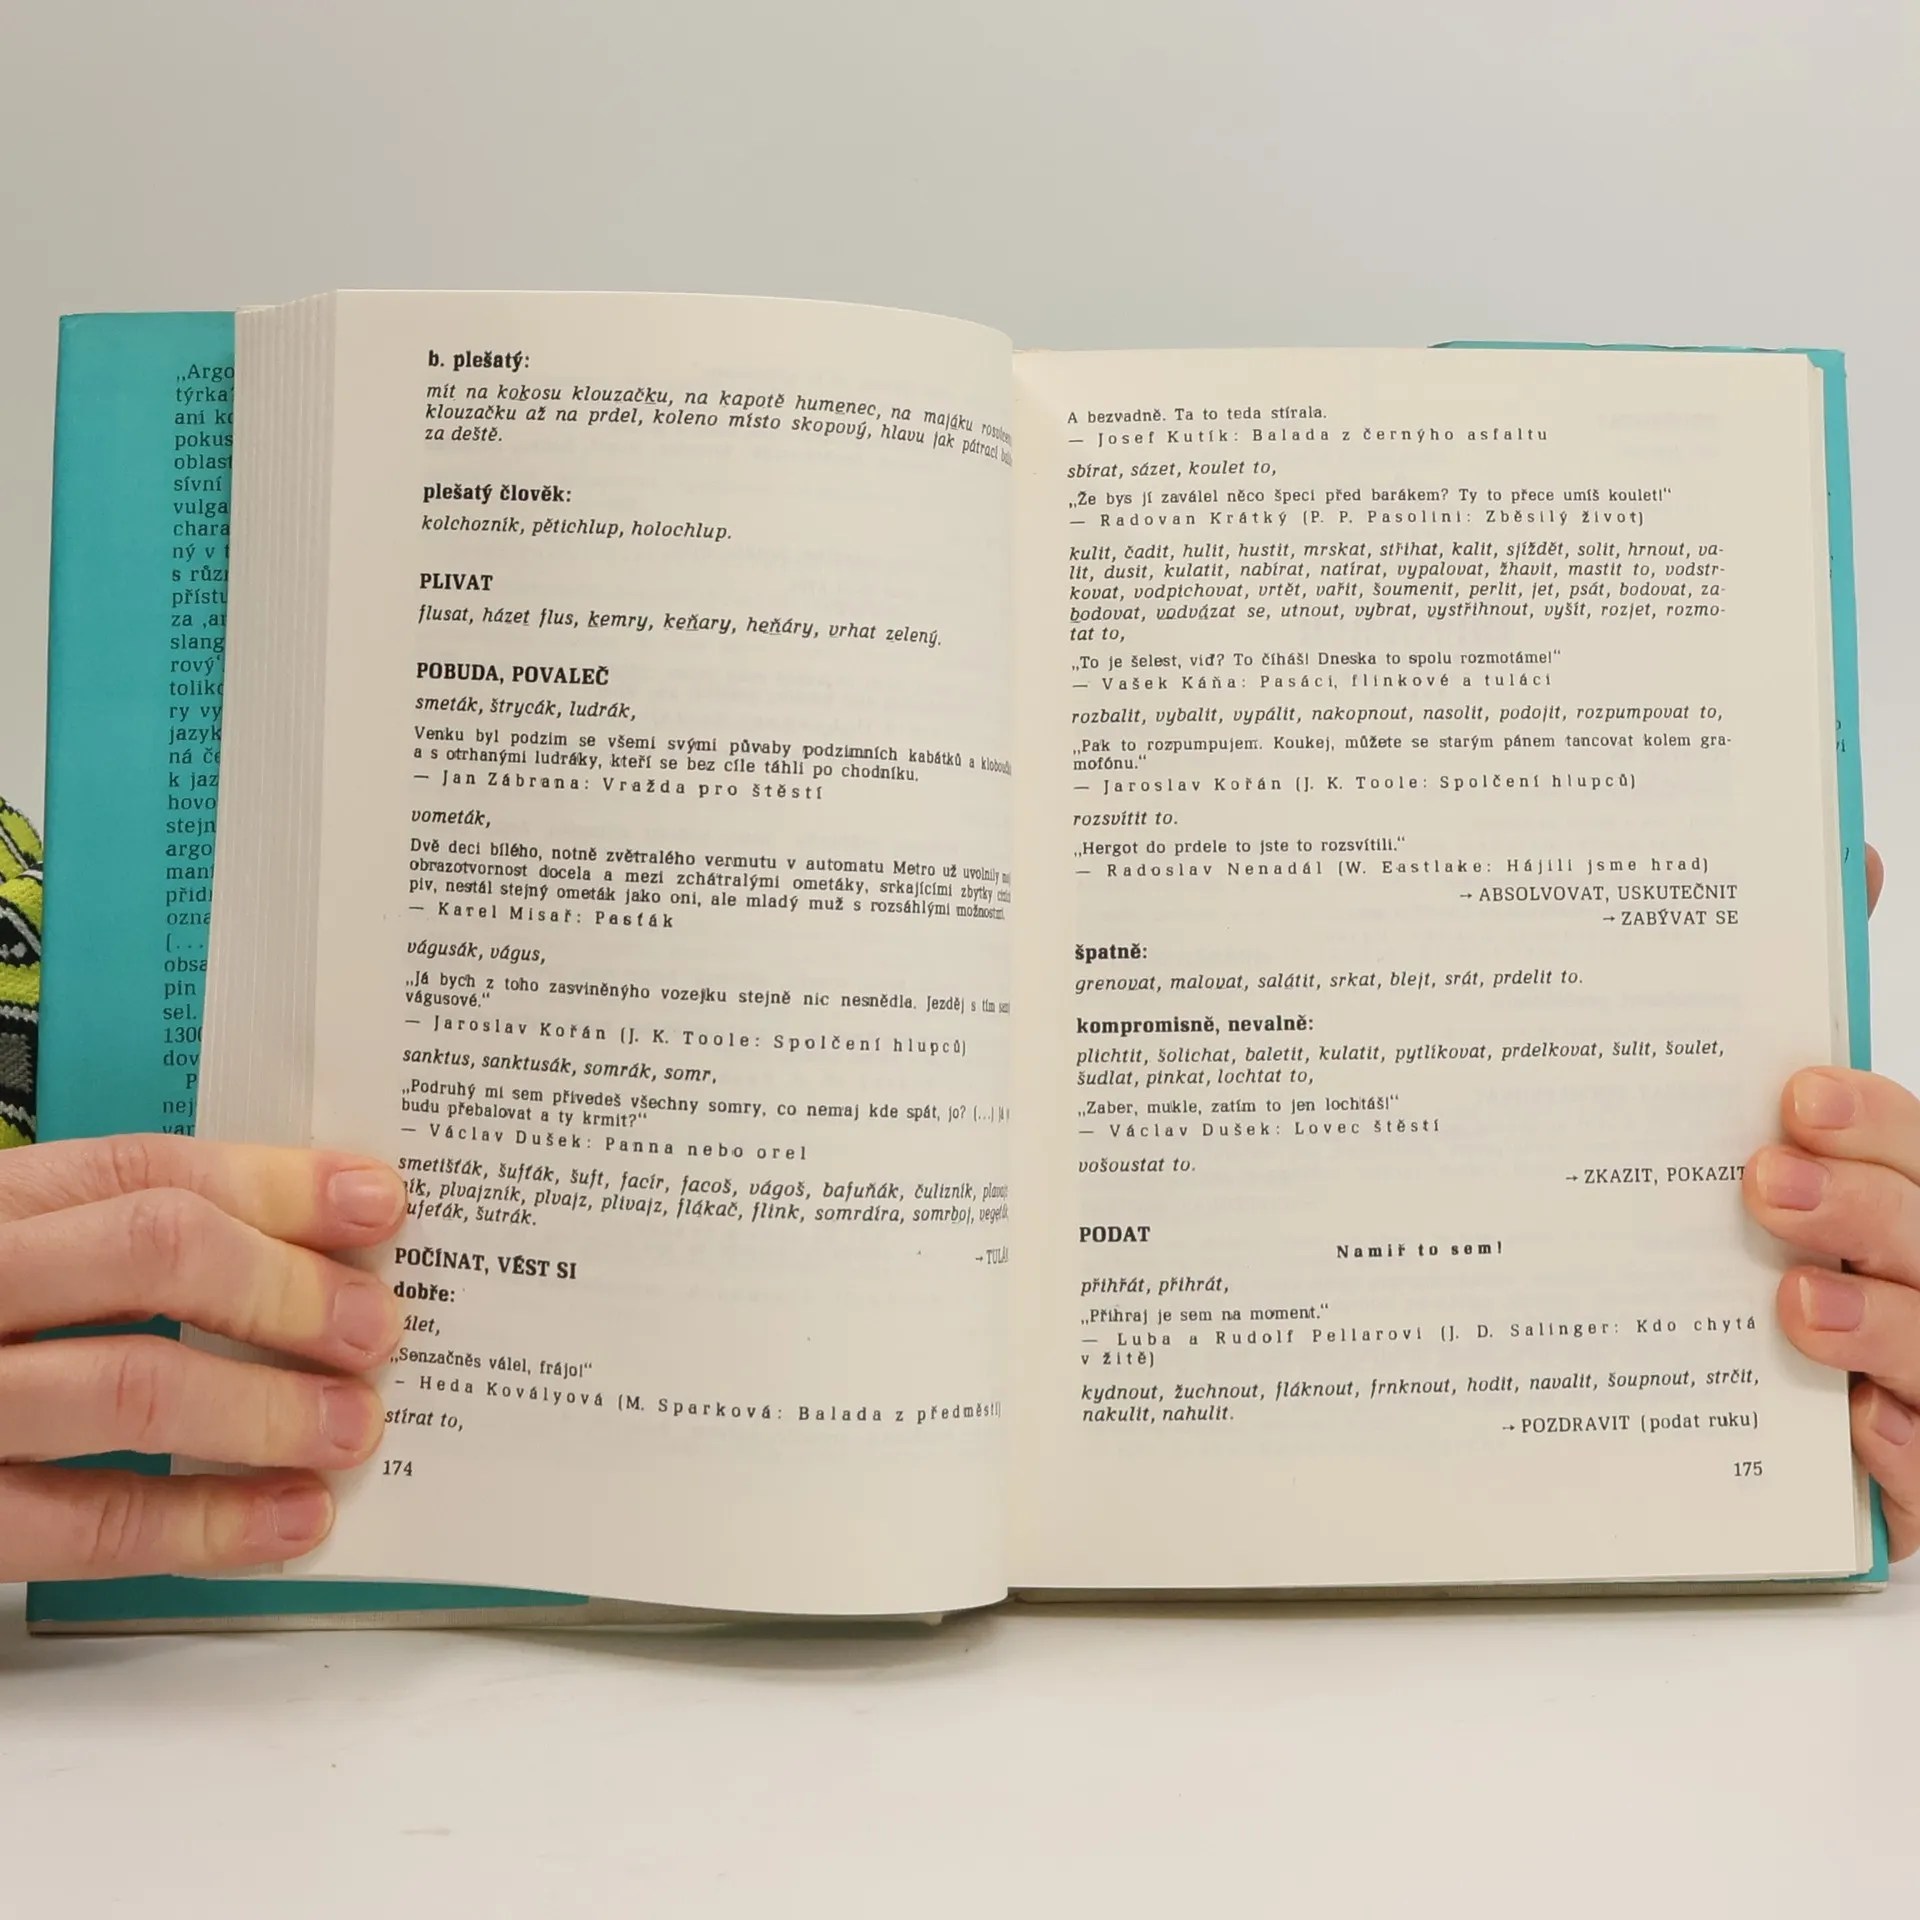 „Argo
týrka
ani
pokus
oblast
sívní
vulga
chara
ný v
s různ
přístu
za ‚ar
slang
rový‘
tolik
ry vy
jazyk
ná
k jaz
hovo
stejn
argo
mani
přidr
ozna
(...
obsa
pin
sel.
1300
dov
P
nej
var
b. plešatý:
mít na kokosu klouzačku, na kapotě humenec, na majáku
klouzačku až na prdel, koleno místo skopový, hlavu jak pátrací
za deště.
plešatý člověk:
kolchozník, pětichlup, holochlup.
PLIVAT
flusat, házet flus, kemry, keňary, heňáry, vrhat zelený.
POBUDA, POVALEČ
smeták, štrycák, ludrák,
Venku byl podzim se všemi svými půvaby podzimních kabátků a klobouků
a s otrhanými ludráky, kteří se bez cíle táhli po chodníku.
— Jan Zábrana: Vražda pro štěstí
vometák,
Dvě deci bílého, notně zvětralého vermutu v automatu Metro už uvolnily
obrazotvornost docela a mezi zchátralými ometáky, srkajícími zbytky
piv, nestál stejný ometák jako oni, ale mladý muž s rozsáhlými možnostmi.
— Karel Misař: Pasťák
vágusák, vágus,
„Já bych z toho zasviněnýho vozejku stejně nic nesnědla. Jezděj s tím
vágusové.“
— Jaroslav Kořán (J. K. Toole: Spolčení hlupců)
sanktus, sanktusák, somrák, somr,
„Podruhý mi sem přivedeš všechny somry, co nemaj kde spát, jo? (...)
budu přebalovat a ty krmit?“
— Václav Dušek: Panna nebo orel
smetišťák, šufťák, šuft, facír, facoš, vágoš, bafuňák, čulizník,
ník, plvajzník, plvajz, plivajz, flákač, flink, somrdíra, somrboj,
ufeťák, šutrák.
→ TULÁ
POČÍNAT, VÉST SI
dobře:
álet,
„Senzačněs válel, frájo!“
— Heda Kovályová (M. Sparková: Balada z předměstí)
stírat to,
174
A bezvadně. Ta to teda stírala.
— Josef Kutík: Balada z černýho asfaltu
sbírat, sázet, koulet to,
„Že bys jí zaválel něco špeci před barákem? Ty to přece umíš koulet!“
— Radovan Krátký (P. P. Pasolini: Zběsilý život)
kulit, čadit, hulit, hustit, mrskat, střihat, kalit, sjíždět, solit, hrnout, va-
lit, dusit, kulatit, nabírat, natírat, vypalovat, žhavit, mastit to, vodstr-
kovat, vodpichovat, vrtět, vařit, šoumenit, perlit, jet, psát, bodovat, za-
bodovat, vodvázat se, utnout, vybrat, vystřihnout, vyšít, rozjet, rozmo-
tat to,
„To je šelest, viď? To číháš! Dneska to spolu rozmotáme!“
— Vašek Káňa: Pasáci, flinkové a tuláci
rozbalit, vybalit, vypálit, nakopnout, nasolit, podojit, rozpumpovat to,
„Pak to rozpumpujem. Koukej, můžete se starým pánem tancovat kolem gra-
mofónu.“
— Jaroslav Kořán (J. K. Toole: Spolčení hlupců)
rozsvítit to.
„Hergot do prdele to jste to rozsvítili.“
— Radoslav Nenadál (W. Eastlake: Hájili jsme hrad)
→ ABSOLVOVAT, USKUTEČNIT
→ ZABÝVAT SE
špatně:
grenovat, malovat, salátit, srkat, blejt, srát, prdelit to.
kompromisně, nevalně:
plichtit, šolichat, baletit, kulatit, pytlíkovat, prdelkovat, šulit, šoulet,
šudlat, pinkat, lochtat to,
„Zaber, mukle, zatím to jen lochtáš!“
— Václav Dušek: Lovec štěstí
vošoustat to.
→ ZKAZIT, POKAZIT
PODAT
Namiř to sem!
přihřát, přihrát,
„Přihraj je sem na moment.“
— Luba a Rudolf Pellarovi (J. D. Salinger: Kdo chytá
v žitě)
kydnout, žuchnout, fláknout, frnknout, hodit, navalit, šoupnout, strčit,
nakulit, nahulit.
→ POZDRAVIT (podat ruku)
175